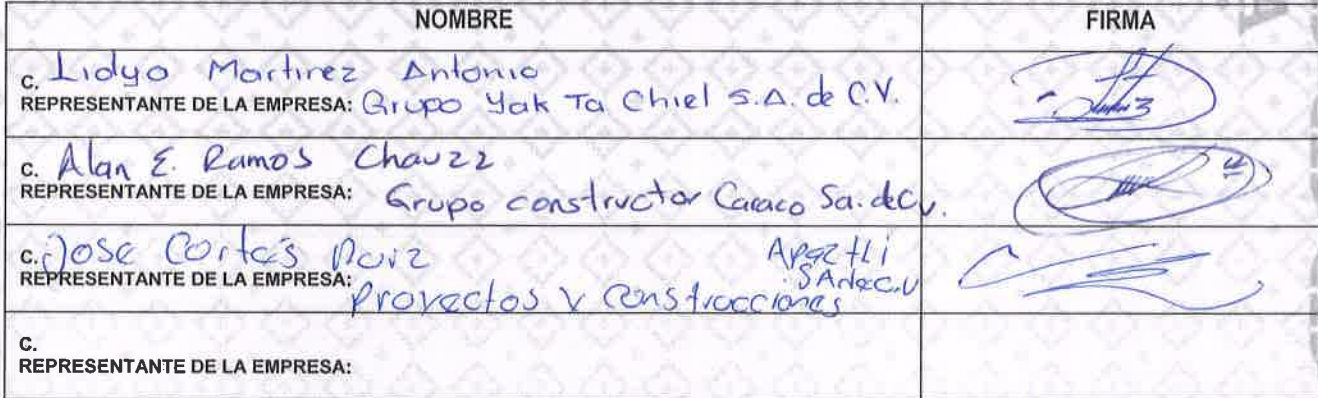 NOMBRE FIRMA
C. Lidyo Martinez Antonio
REPRESENTANTE DE LA EMPRESA: Grupo Yak Ta Chiel S.A. de C.V.
C. Alan E. Ramos Chauzz
REPRESENTANTE DE LA EMPRESA: Grupo constructor Caraco Sa. de Cv.
C. Jose Cortes Ruiz Apaztli
REPRESENTANTE DE LA EMPRESA: SA de C.V
Proyectos y Construcciones
C.
REPRESENTANTE DE LA EMPRESA: